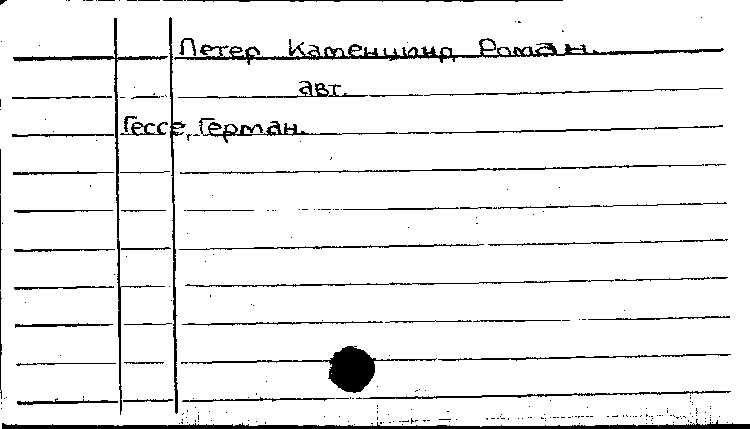 Петер Каменцинд Роман.
авт.
Гессе, Герман.